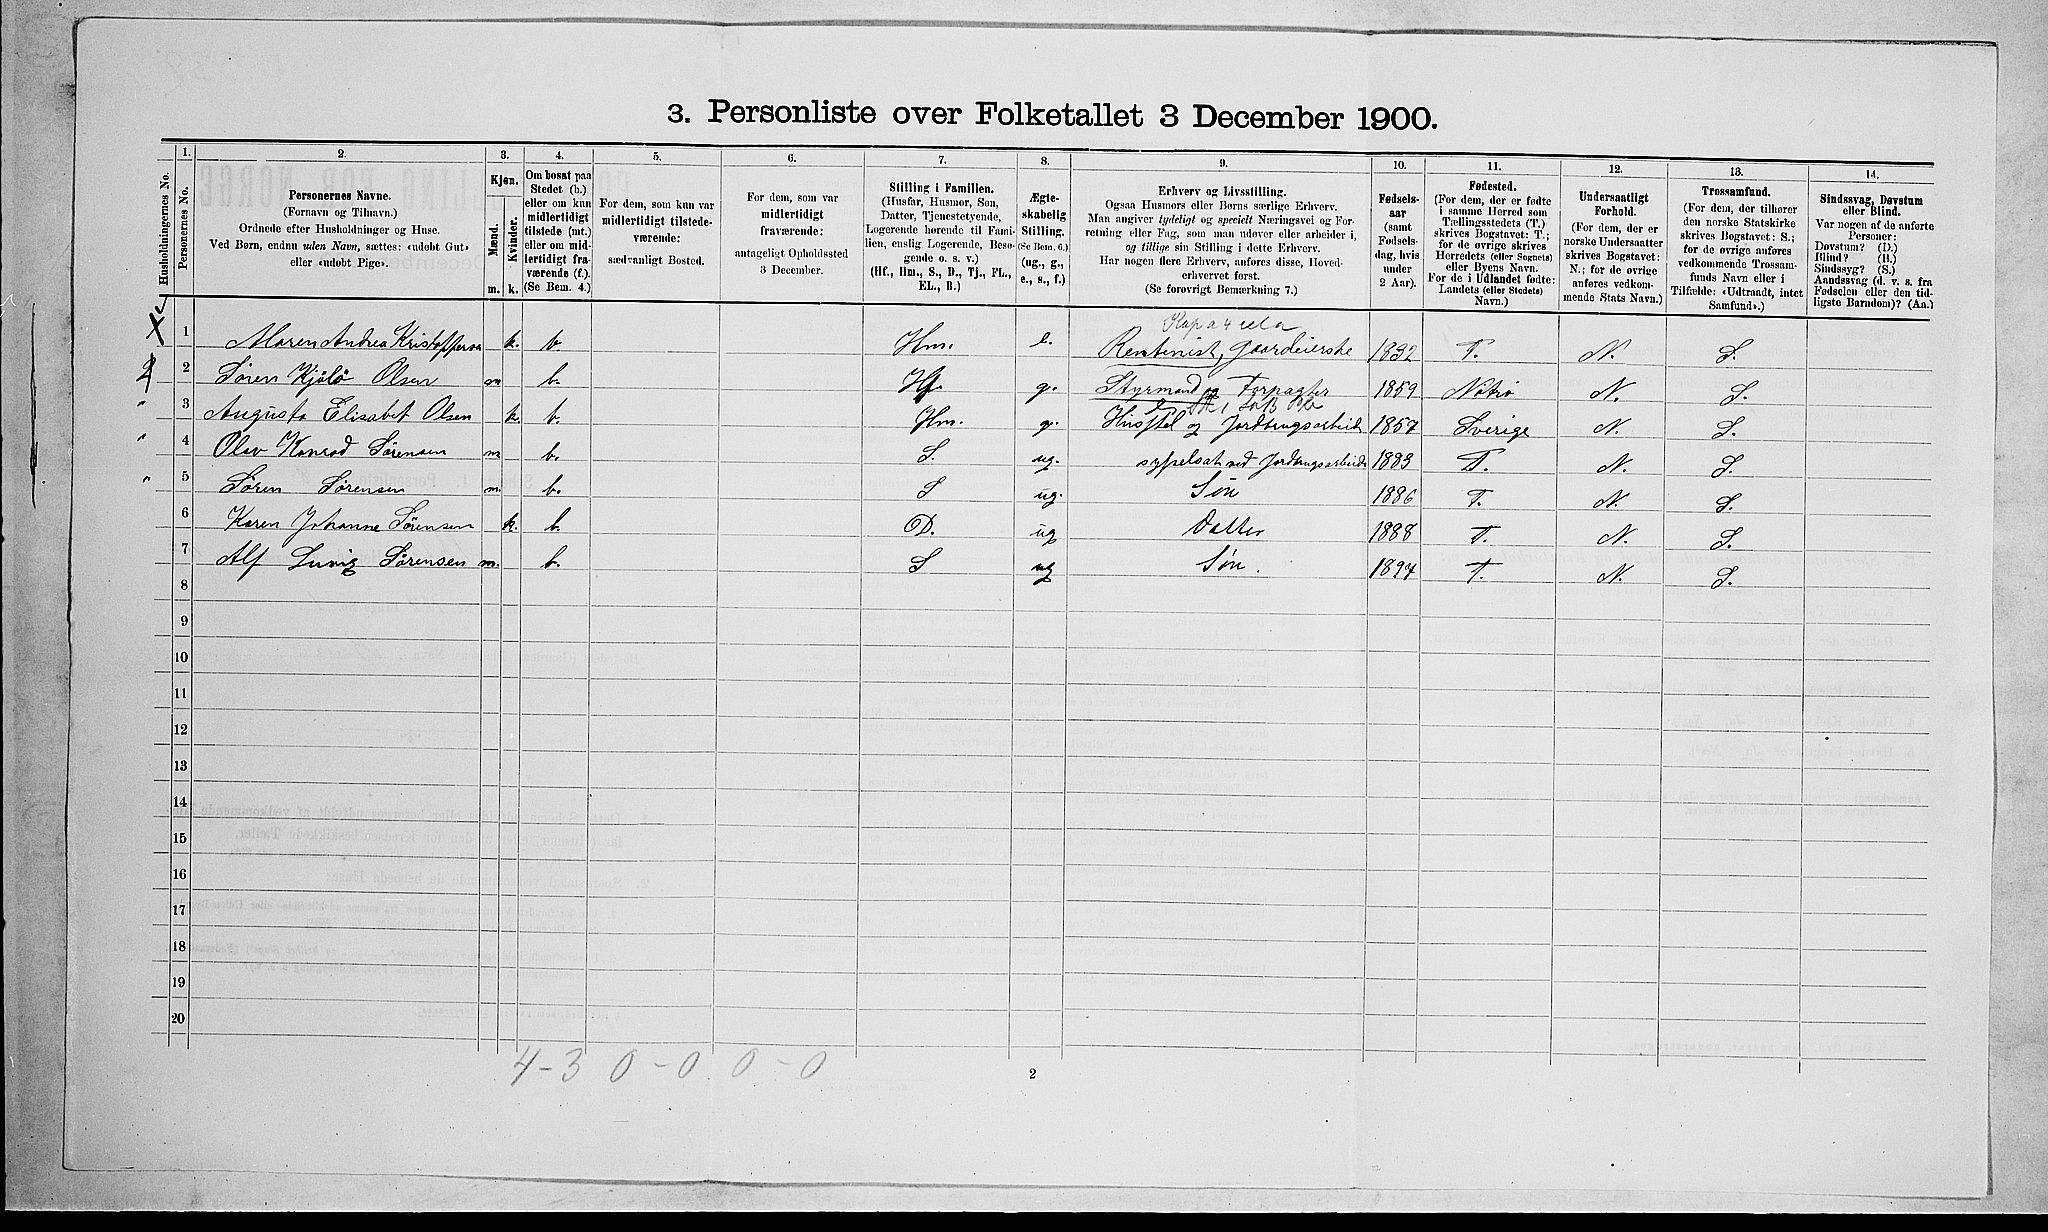 3. Personliste over Folketallet 3 December 1900.
Husholdningernes No.
1. Personernes No.
2.
Personernes Navne.
(Fornavn og Tilnavn.)
Ordnede efter Husholdninger og Huse.
Ved Børn, endnu uden Navn, sættes: «udøbt Gut»
eller «udøbt Pige».
3.
Kjøn.
Mænd.
Kvinder.
m. k.
4.
Om bosat paa
Stedet (b.)
eller om kun
midlertidigt
tilstede (mt.)
eller om mid-
lertidigt fra-
værende (f.).
(Se Bem. 4.)
5.
For dem, som kun var
midlertidigt tilstede-
værende:
sædvanligt Bosted.
6.
For dem, som var
midlertidigt
fraværende:
antageligt Opholdssted
3 December.
7.
Stilling i Familien.
(Husfar, Husmor, Søn,
Datter, Tjenestetyende,
Logerende hørende til Fami-
lien, enslig Logerende, Besø-
gende o. s. v.)
(Hf., Hm., S., D., Tj., FL.,
EL., B.)
8.
Ægte-
skabelig
Stilling.
(Se Bem. 6.)
(ug., g.,
e., s., f.)
9.
Erhverv og Livsstilling.
Ogsaa Husmors eller Børns særlige Erhverv.
Man angiver tydeligt og specielt Næringsvei og For-
retning eller Fag, som man udøver eller arbeider i,
og tillige sin Stilling i dette Erhverv.
Har nogen flere Erhverv, anføres disse, Hoved-
erhvervet først.
(Se forøvrigt Bemærkning 7.)
10.
Fødsels-
aar
(samt
Fødsels-
dag, hvis
under
2 Aar).
11.
Fødested.
(For dem, der er fødte
i samme Herred som
Tællingsstedets (T.)
skrives Bogstavet: T.;
for de øvrige skrives
Herredets (eller Sognets)
eller Byens Navn.
For de i Udlandet fødte:
Landets (eller Stedets)
Navn.)
12.
Undersaatligt
Forhold.
(For dem, der er
norske Undersaatter
skrives Bogstavet:
N.; for de øvrige
anføres vedkom-
mende Stats Navn.)
13.
Trossamfund.
(For dem, der tilhører
den norske Statskirke
skrives Bogstavet: S.;
for de øvrige anføres
vedkommende Trossam-
funds Navn eller i
Tilfælde: «Udtraadt, intet
Samfund».)
14.
Sindssvag, Døvstum
eller Blind.
Var nogen af de anførte
Personer:
Døvstum? (D.)
Blind? (B.)
Sindssyg? (S.)
Aandssvag (d. v. s. fra
Fødselen eller den tid-
ligste Barndom)? (Aa.)
1 Maren Andrea Kristoffersen k. b. Hm. e. Rentenist, gaardeierske 1832 T. N. S.
2 2 Søren Kjølø Olsen m b. Hf. g. Styrmand og Forpagter 1859 Nøtrø N. S.
" 3 Augusta Elisabet Olsen k. b. Hm. g. Husstel og Jordbrugsarbeide 1857 Sverige N. S.
" 4 Olav Konrad Sørensen m b. S. ug. sysselsat ved Jordbrugsarbeide 1883 T. N. S.
" 5 Søren Sørensen m. b. S ug. Søn 1886 T. N. S.
6 Karen Johanne Sørensen k. b. D. ug Datter 1888 T. N. S.
7 Alf Luvig Sørensen m. b. S ug Søn. 1894 T. N. S.
8
9
10
11
12
13
14
15
16
17
18
19
20
4 - 3 0 - 0 0 - 0
2